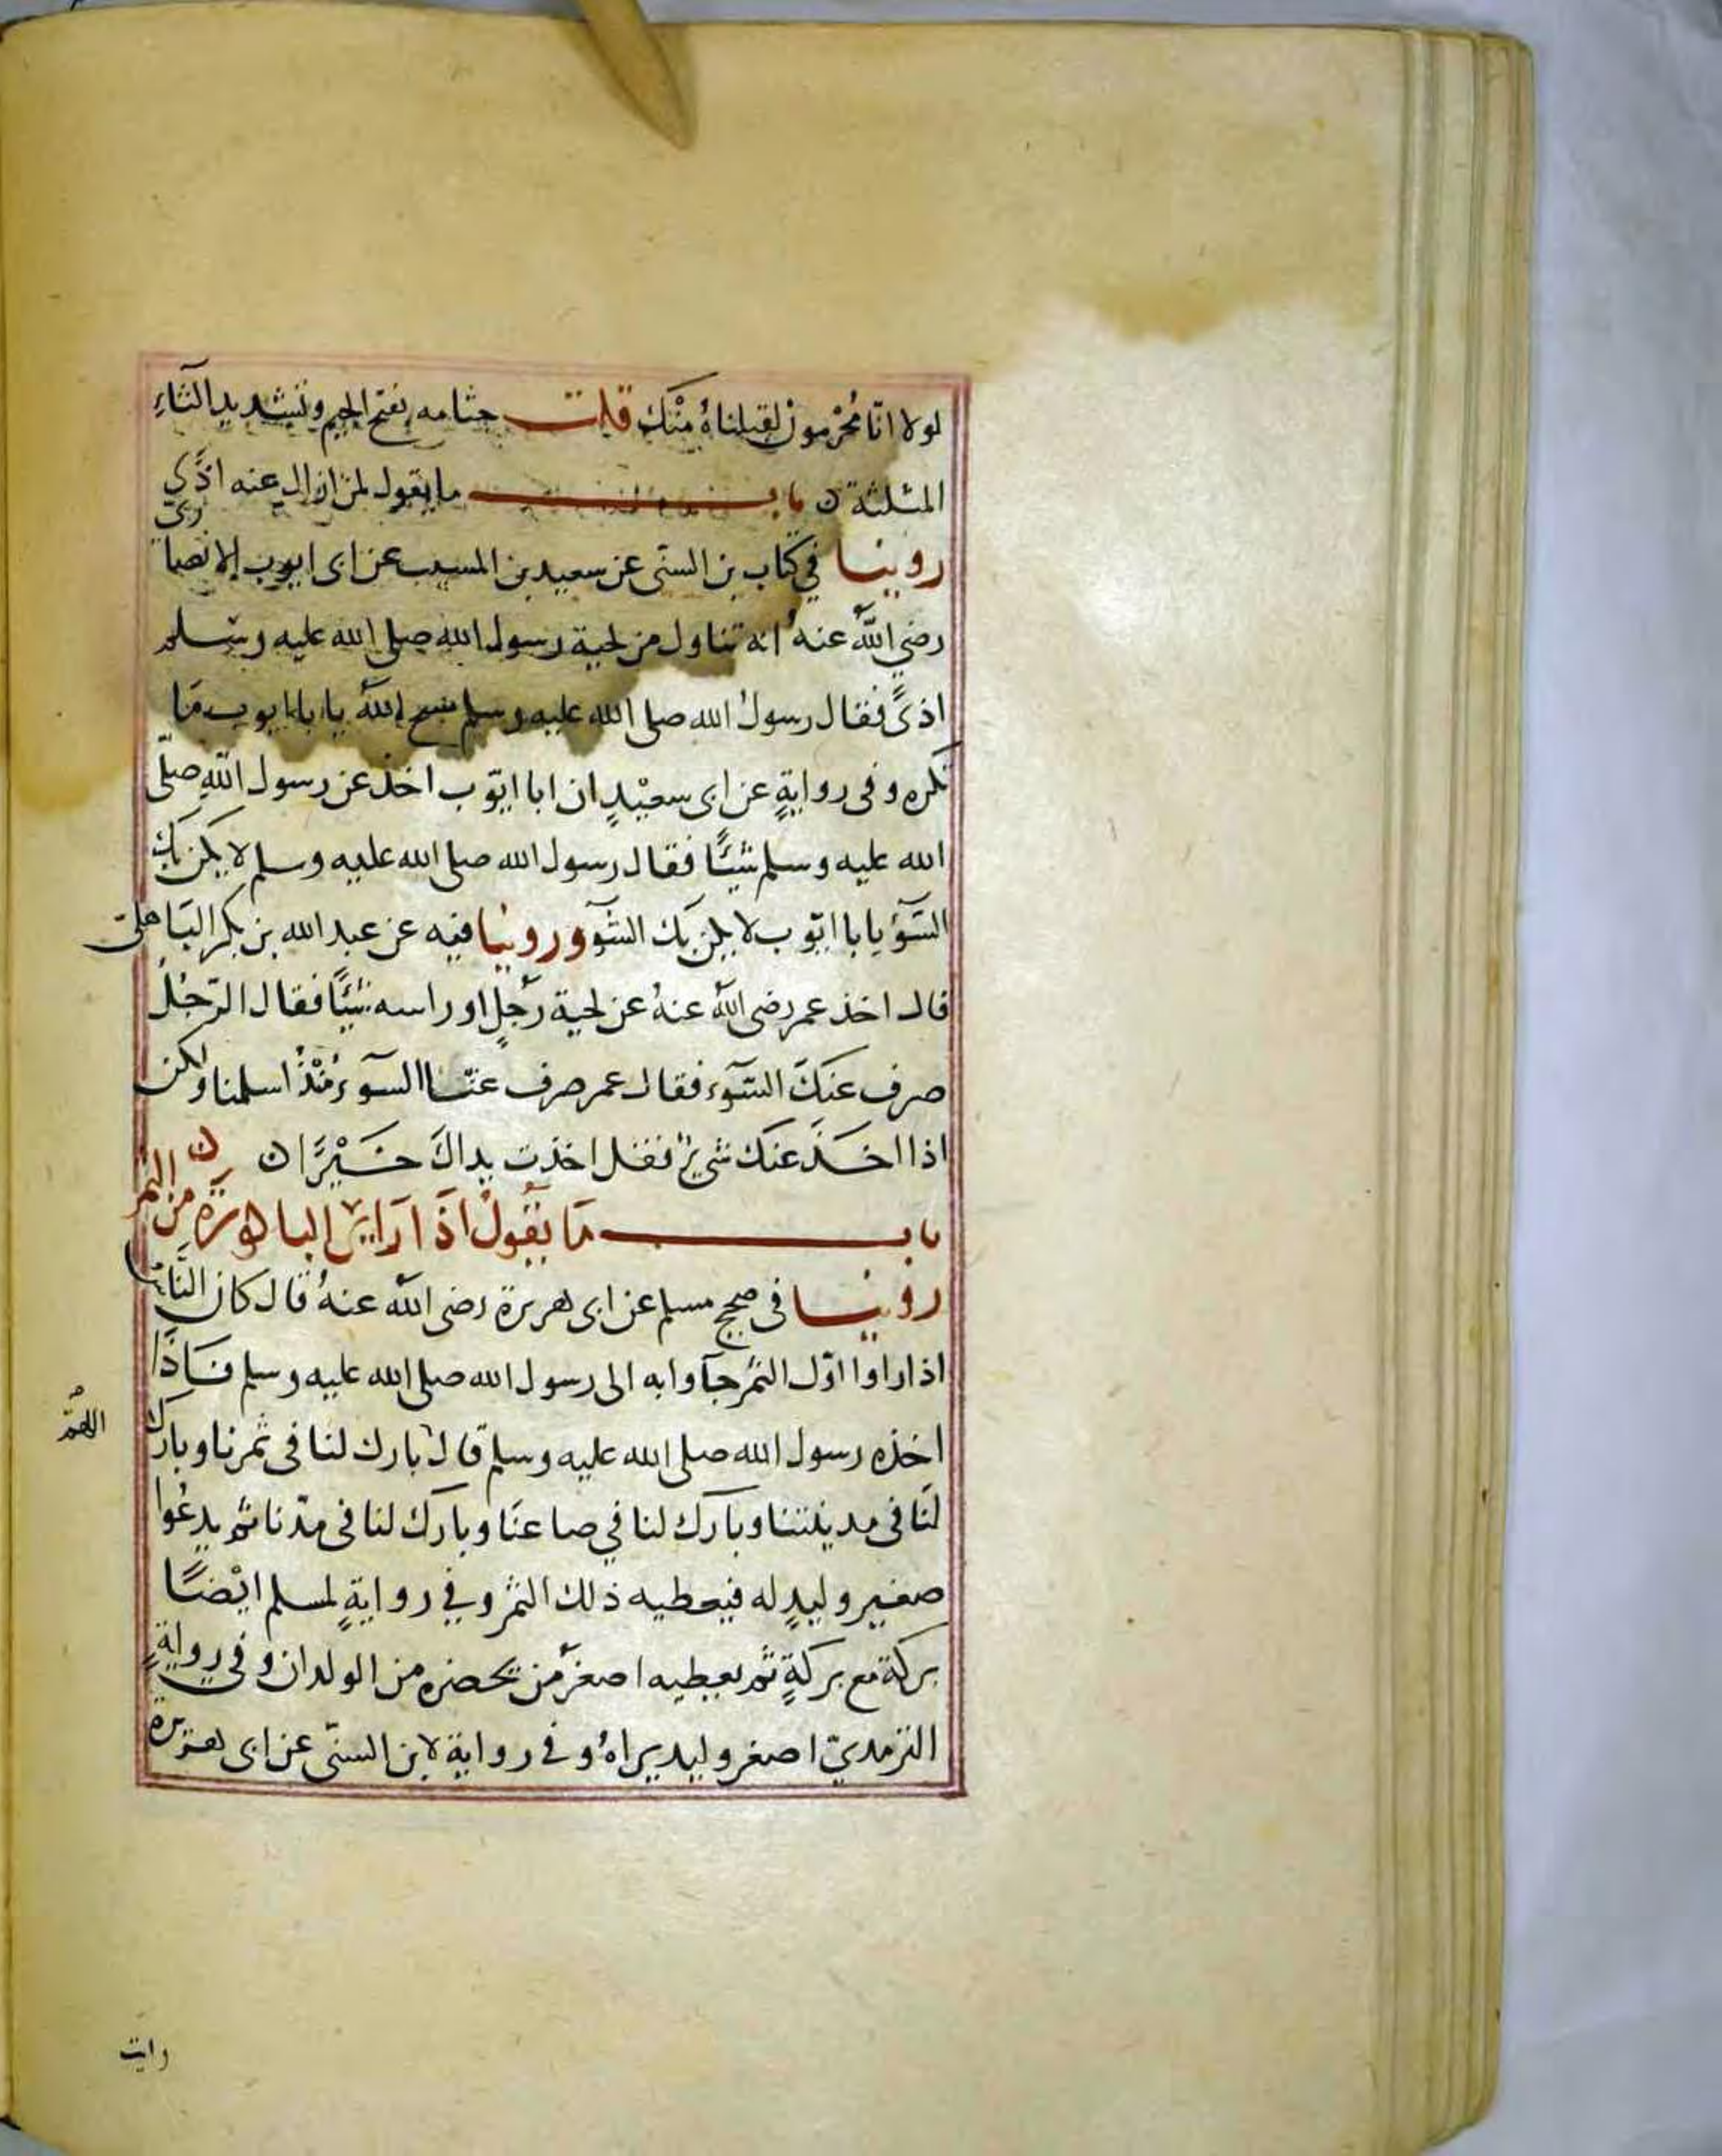 لولا انّا مُحْرمونْ لقبلناهُ منْكَ قلت جثامه بفتح الجيم وتشديد الثاءِ
المثلثة ن باب ما يقول لمن ازال عنه اذًى
روينا في كتاب بن السنّى عن سعيد بن المسيب عن ابى ايوب الانصارىّ
رضي اللّهُ عنهُ انه تناول من لحية رسول الله صلى الله عليه وسلم
اذىً فقال رسولُ الله صلى الله عليه وسلم مسح اللّهُ يا بابا ايوب مَا
تكره وفى روايةٍ عن ابى سعيْدٍ ان ابا ايّوب اخذ عن رسول اللّهِ صلّى
الله عليه وسلم شيئًا فقال رسول الله صلى الله عليه وسلم لا يكن بكَ
السّوُٓ يا با ايّوب لا يكن بكَ السّوٓ وروينا فيه عن عبد الله بن بكر البَاهلىّ
قال اخذ عمر رضى اللّهُ عنهُ عن لحية رَجلٍ او راسه شيئًا فقال الرّجُلُ
صرف عنكَ السّوٓء فقال عمر صرف عنّا السوٓء مُنْذُ اسلمنا ولكن
اذا اخَذَ عنكَ شىءٌ فقل اخذت يداكَ خَيْرًا ن
باب مَا يقُولُ اذَا رَاىَ الباكورَةَ من الثمر
روينا فى صحيح مسلم عن ابى هريرة رضى اللّه عنهُ قال كان النَّاسُ
اذا راوا اوّل الثمر جآوا به الى رسول الله صلى الله عليه وسلم فَاذَا
اخذه رسول الله صلى الله عليه وسلم قال بارك لنا فى ثمرنا وبارك
اللهُمّ
لَنَا فى مدينتنا وبَارك لنا في صاعنَا وبارَكَ لنا فى مدّنا ثم يدعُوا
صغير وليدٍ له فيعطيه ذلك الثمر وفي روايةٍ لمسلم ايْضًا
بركة مع بركةٍ ثم يعطيه اصغرَ من يحضره من الولدان وفى روايةٍ
الترمديّ اصغر وليد يراهُ وفى رواية لابن السنّى عن ابى هريرة
رايت